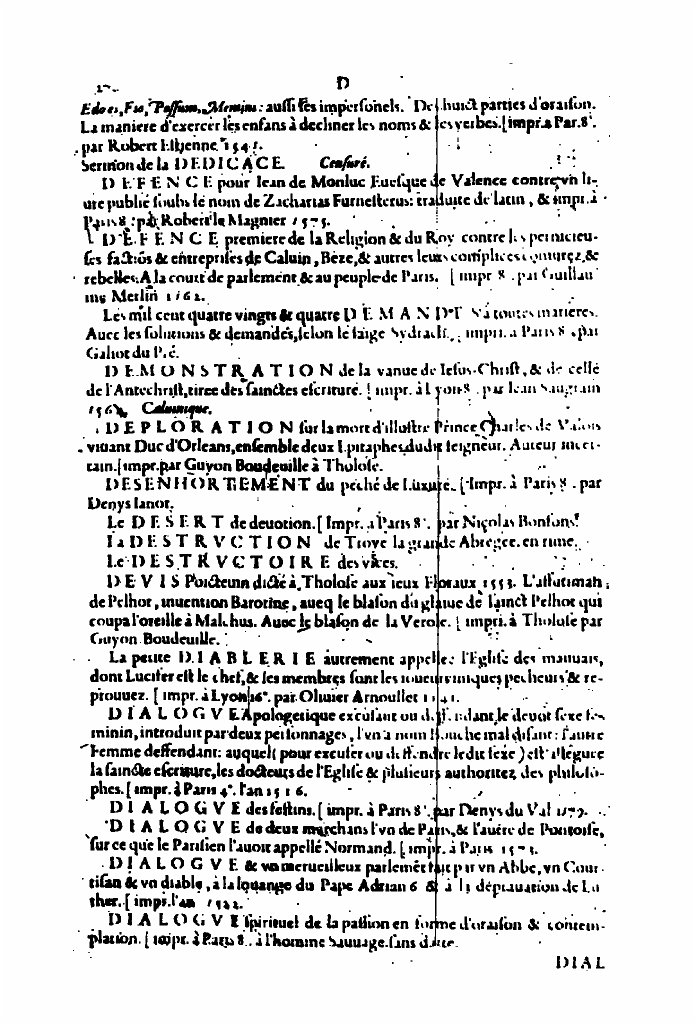 D
Edoces, Fio, Possum, Memini: aussi les impersonels. De huict parties d'oraison.
La maniere d'exercer les enfans à decliner les noms & les verbes. [impr.a Par.8°.
par Robert Estienne 1545.
Sermon de la DEDICACE. Censuré.
DEFENCE pour Iean de Monluc Euesque de Valence contre vn li-
ure publié soubs le nom de Zacharias Furnesterus: traduite de latin, & impr. à
Paris 8. par Robert le Magnier 1575.
DEFENCE premiere de la Religion & du Roy contre les pernicieu-
ses factiõs & entreprises de Caluin, Beze, & autres leurs complices coniurez, &
rebelles. A la court de parlement & au peuple de Paris. [impr 8. par Guillau
me Merlin 1562.
Les mil cent quatre vingts & quatre DEMANDES à toutes matieres.
Auec les solutions & demandes, selon le saige Sydrach. impri. a Paris 8. par
Galiot du Pré.
DEMONSTRATION de la venue de Iesus-Christ, & de celle
de l'Antechrist, tiree des sainctes escriture. [impr. à Lyon 8. par Iean Saugrain
Calomnique.
DEPLORATION sur la mort d'illustre Prince Charles de Valois
viuant Duc d'Orleans, ensemble deux Epitaphes dudit seigneur. Auteur incer-
tain. [impr. par Guyon Boudeuille à Tholose.
DESENHORTEMENT du peché de Luxure. [Impr. à Paris 8. par
Denys Ianot.
Le DESERT de deuotion. [Impr. a Paris 8°. par Nicolas Bonfons.
La DESTRVCTION de Troye la grande Abregee. en rime.
Le DESTRVCTOIRE des vices.
DEVIS Poicteuin dicté à Tholose aux ieux Floraux 1553. L'assutimah
de Pelhot, inuention Barotine, aueq le blason du glaiue de sainct Pelhot qui
coupa l'oreille à Malchus. Auec le blason de la Verole. [impri. à Tholose par
Guyon Boudeuille.
La petite DIABLERIE autrement appellee l'Eglise des mauuais,
dont Lucifer est le chef, & les membres sont les ioueurs iniques pecheurs & re-
prouuez. [impr. à Lyon 16°. par Oliuier Arnoullet 1541.
DIALOGVE Apologetique excusant ou deffendant le deuot sexe fe-
minin, introduit par deux personnages, l'vn a nom Bouche mal disant: l'autre
Femme deffendant: auquel (pour excuser ou deffendre ledit sexe) est allegué
la saincte escriture, les docteurs de l'Eglise & plusieurs authoritez des philoso-
phes. [impr. à Paris 4°. l'an 1516.
DIALOGVE des festins. [impr. à Paris 8°. par Denys du Val 1579.
DIALOGVE de deux marchans l'vn de Paris, & l'autre de Pontoise,
sur ce que le Parisien l'auoit appellé Normand. [impr. à Paris 1573.
DIALOGVE & vn merueilleux parlemẽt fait par vn Abbe, vn Cour
tisan & vn diable, à la louange du Pape Adrian 6 & à la deprauation de Lu
ther. [impr. l'an 1522.
DIALOGVE spirituel de la passion en forme d'oraison & contem-
plation. [impr. à Paris 8. à l'homme Sauuage. sans date.
DIAL